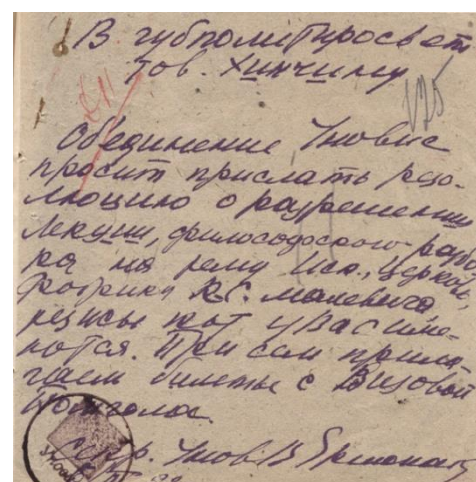 В губполитпросвет
тов. Хинчину
Объединение Уновис
просит прислать резо-
люцию о разрешении
лекции, философского
на тему Иск., Церковь,
Фабрика К.С. Малевича
тезисы кот у Вас име-
ются. При сем прила-
гаем билеты с Визовой
Секр. Унов В Ермолаева